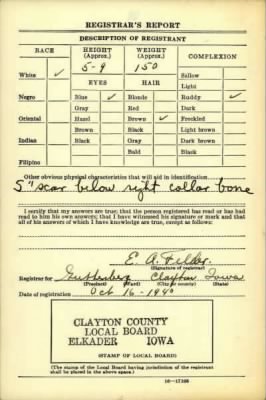 REGISTRAR'S REPORT
DESCRIPTION OF REGISTRANT
RACE HEIGHT (Approx.) WEIGHT (Approx.) COMPLEXION
5-9 150
White ✓ Sallow
EYES HAIR Light
Negro Blue ✓ Blonde Ruddy ✓
Gray Red Dark
Oriental Hazel Brown ✓ Freckled
Brown Black Light brown
Indian Black Gray Dark brown
Bald Black
Filipino
Other obvious physical characteristics that will aid in identification
5" scar below right collar bone
I certify that my answers are true; that the person registered has read or has had
read to him his own answers; that I have witnessed his signature or mark and that
all of his answers of which I have knowledge are true, except as follows:
E. A. Felker.
(Signature of registrar)
Registrar for Guttenberg Clayton Iowa
(Precinct) (Ward) (City or county) (State)
Date of registration Oct 16-1940
CLAYTON COUNTY
LOCAL BOARD
ELKADER IOWA
(STAMP OF LOCAL BOARD)
(The stamp of the Local Board having jurisdiction of the registrant
shall be placed in the above space.)